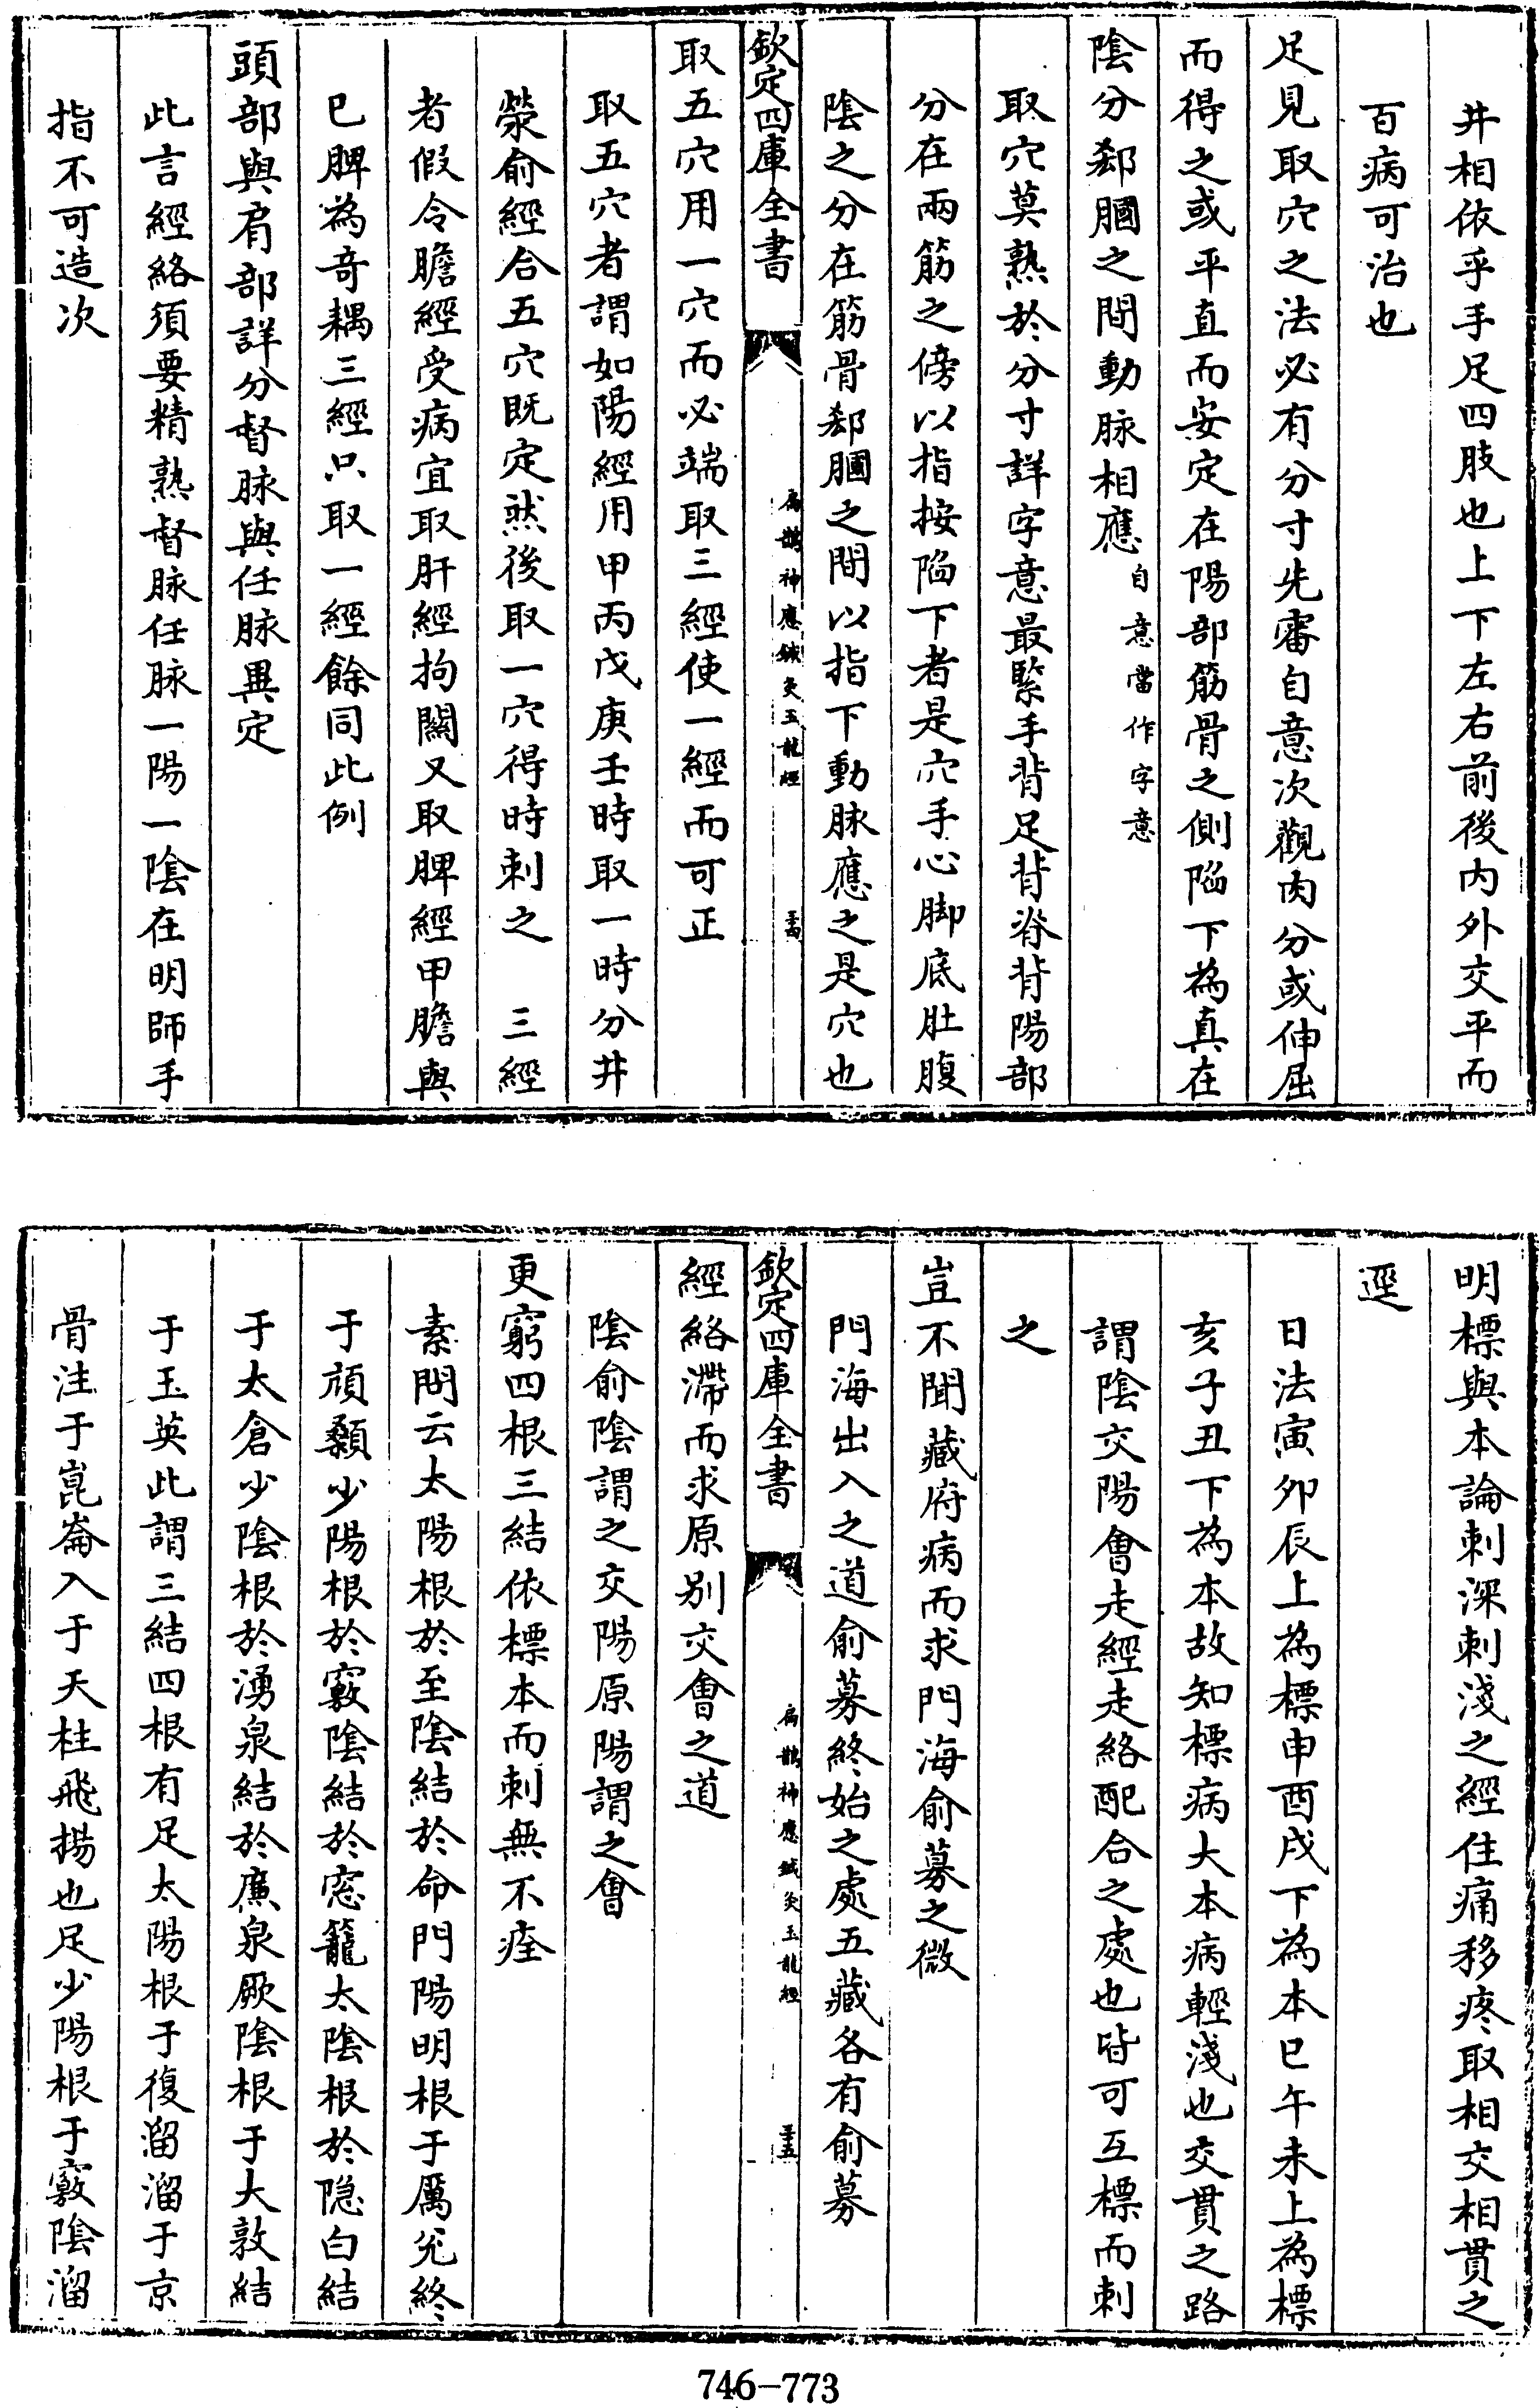 井相依乎手足四肢也上下左右前後内外交平而
百病可治也
足見取穴之法必有分寸先審自意次觀肉分或伸屈
而得之或平直而安定在陽部筋骨之側陷下為真在
陰分郄膕之間動脉相應自意當作字意
取穴莫熟於分寸詳字意最緊手背足背脊背陽部
分在兩筋之傍以指按陷下者是穴手心脚底肚腹
陰之分在筋骨郄膕之間以指下動脉應之是穴也
欽定四庫全書
扁鵲神應鍼灸玉龍經
三十四
取五穴用一穴而必端取三經使一經而可正
取五穴者謂如陽經用甲丙戊庚壬時取一時分井
滎俞經合五穴既定然後取一穴得時刺之 三經
者假令膽經受病宜取肝經拘關又取脾經甲膽與
巳脾為奇耦三經只取一經餘同此例
頭部與肩部詳分督脉與任脉異定
此言經絡須要精熟督脉任脉一陽一陰在明師手
指不可造次
明標與本論刺深刺淺之經住痛移疼取相交相貫之
逕
日法寅夘辰上為標申酉戌下為本巳午未上為標
亥子丑下為本故知標病大本病輕淺也交貫之路
謂陰交陽會走經走絡配合之處也皆可互標而刺
之
豈不聞藏府病而求門海俞募之微
門海出入之道俞募終始之處五藏各有俞募
欽定四庫全書
扁鵲神應鍼灸玉龍經
三十五
經絡滯而求原别交會之道
陰俞陰謂之交陽原陽謂之會
更窮四根三結依標本而刺無不痊
素問云太陽根於至陰結於命門陽明根于厲兊終
于頏顙少陽根於竅陰結於窓籠太陰根於隐白結
于太倉少陰根於湧泉結於廉泉厥陰根于大敦結
于玉英此謂三結四根有足太陽根于復溜溜于京
骨注于崑崙入于天柱飛揚也足少陽根于竅陰溜
746-773